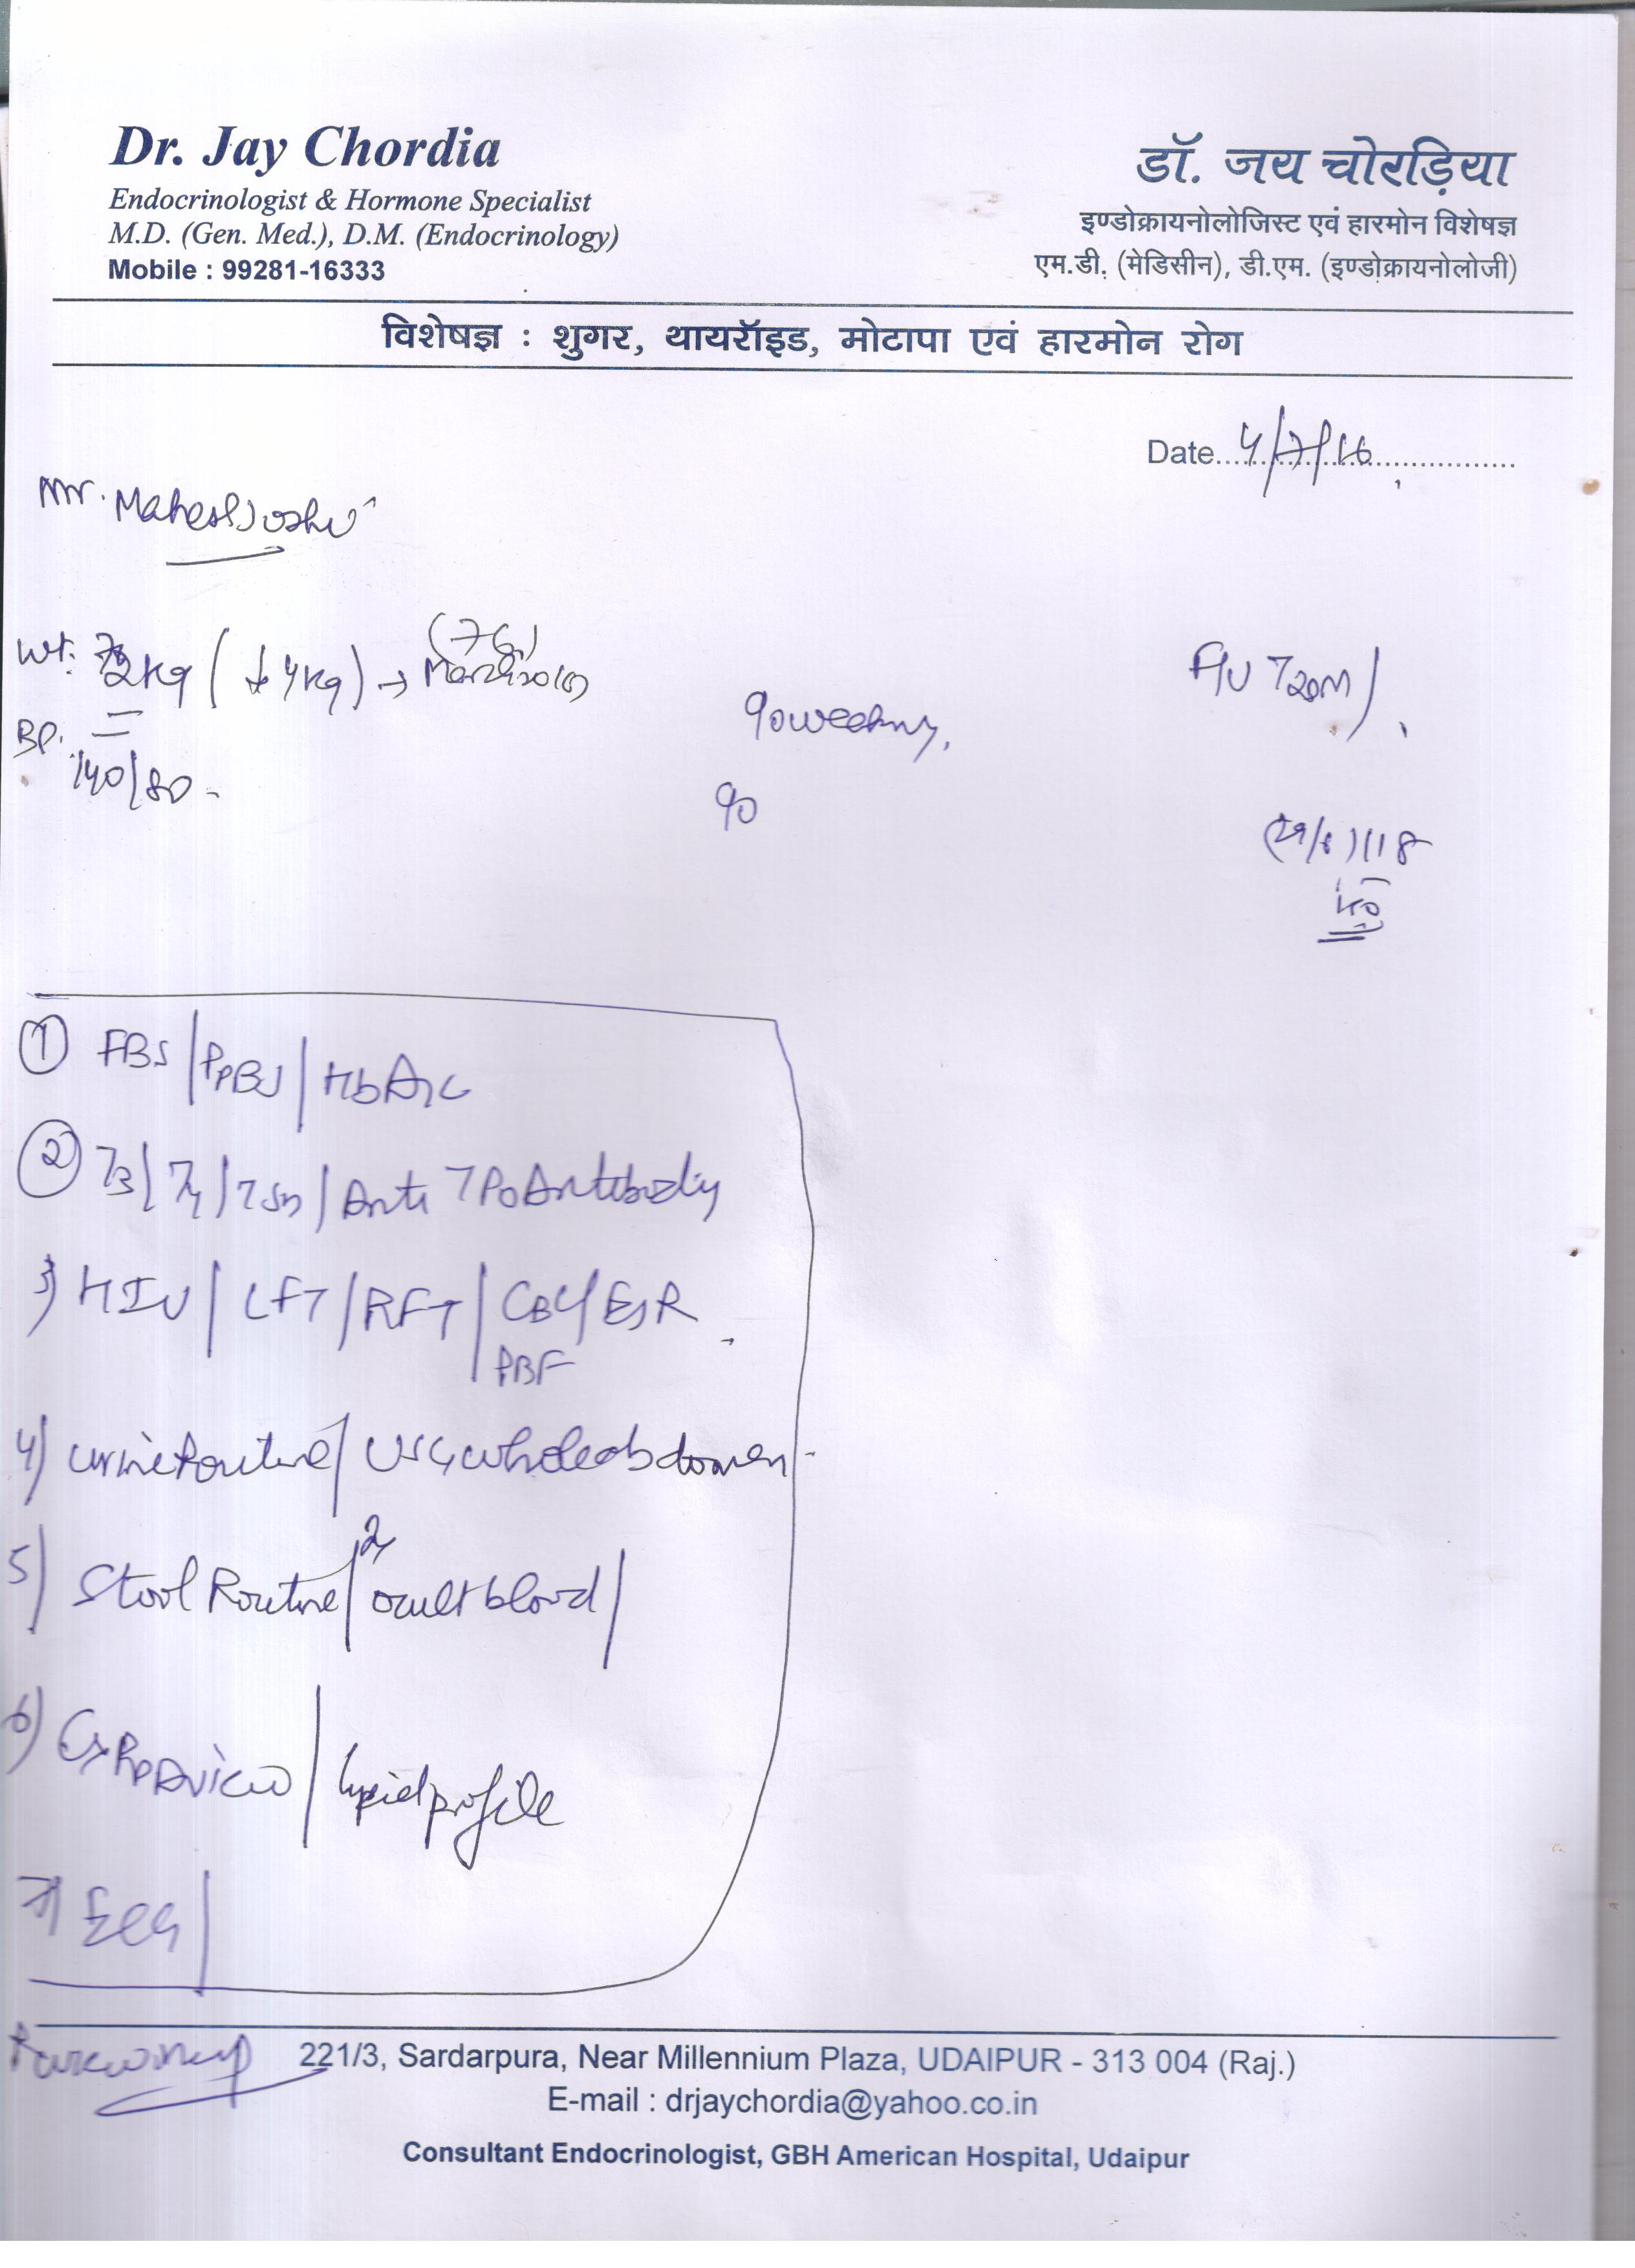 Dr. Jay Chordia
Endocrinologist & Hormone Specialist
M.D. (Gen. Med.), D.M. (Endocrinology)
Mobile : 99281-16333
डॉ. जय चोरड़िया
इण्डोक्रायनोलोजिस्ट एवं हारमोन विशेषज्ञ
एम.डी. (मेडिसीन), डी.एम. (इण्डोक्रायनोलोजी)
विशेषज्ञ : शुगर, थायरॉइड, मोटापा एवं हारमोन रोग
Date 4/7/16
Mr. Mahesh Joshi
Wt. 72kg (↓4kg) → (76)
BP.
140/80
F/U T2DM
90
(29/6) 118
① FBS/PPBS/HbA1c
② T3/T4/TSH/Anti TPO Antibody
3) HIV/LFT/RFT/CBC/ESR
PBF
4) urine Routine/USG whole abdomen
5) Stool Routine/occult blood/
6) CxR PA view/lipid profile
7) ECG
221/3, Sardarpura, Near Millennium Plaza, UDAIPUR - 313 004 (Raj.)
E-mail : drjaychordia@yahoo.co.in
Consultant Endocrinologist, GBH American Hospital, Udaipur